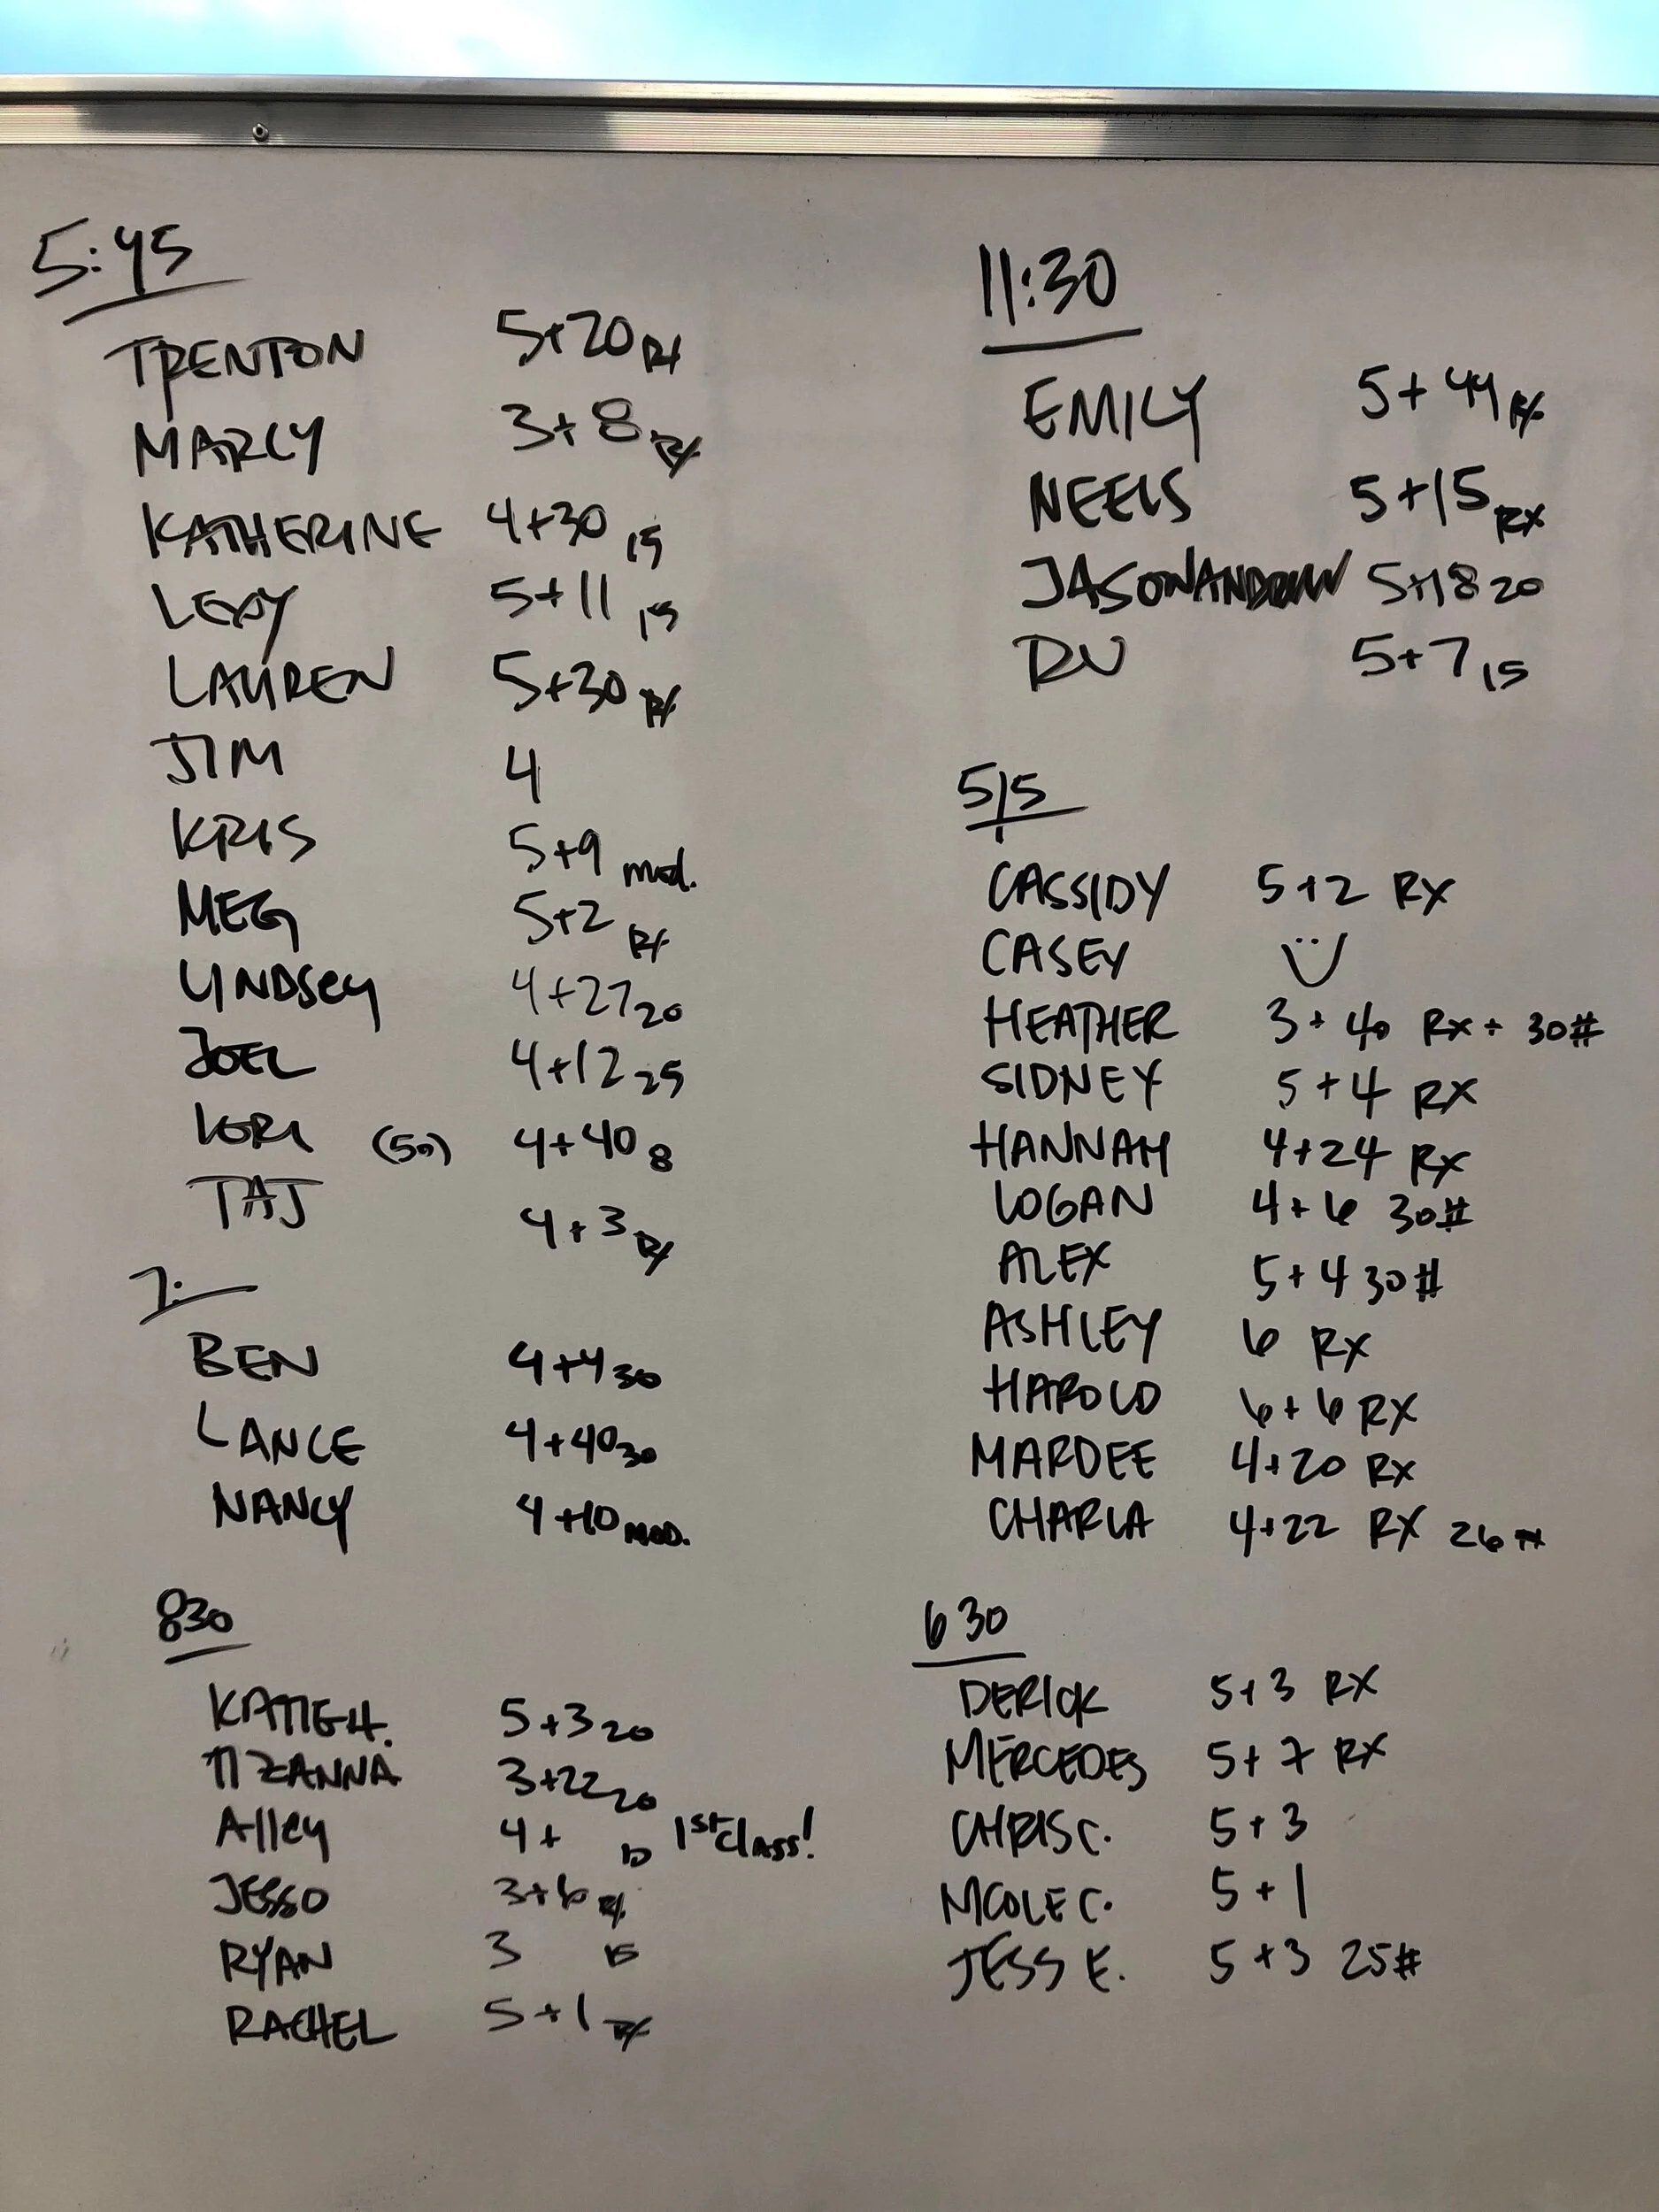 5:45
TRENTON 5+20 RX
MARCY 3+8 RX
KATHERINE 4+30 15
LEXY 5+11 15
LAUREN 5+30 RX
JIM 4
KRIS 5+9 mod.
MEG 5+2 RX
LINDSEY 4+27 20
JOEL 4+12 25
LORI (50) 4+40 8
TAJ 4+3 RX
7:
BEN 4+4 30
LANCE 4+40 30
NANCY 4+10 MOD.
830
KATIE H. 5+3 20
TIZANNA 3+22 20
Alley 4+ 1st Class!
JESSO 3+6 RX
RYAN 3 15
RACHEL 5+1 RX
11:30
EMILY 5+44 RX
NEELS 5+15 RX
5+18 20
RV 5+7 15
515
CASSIDY 5+2 RX
CASEY
HEATHER 3+40 RX + 30#
SIDNEY 5+4 RX
HANNAH 4+24 RX
LOGAN 4+6 30#
ALEX 5+4 30#
ASHLEY 6 RX
HAROLD 6+6 RX
MARDEE 4+20 RX
CHARLA 4+22 RX 26#
630
DERICK 5+3 RX
MERCEDES 5+7 RX
CHRIS C. 5+3
NICOLE C. 5+1
JESS E. 5+3 25#